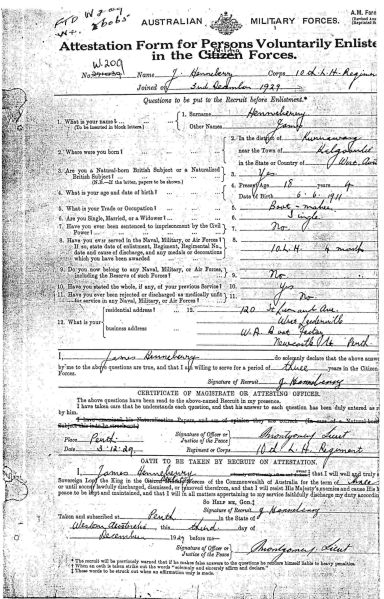 A.M. For
AUSTRALIAN MILITARY FORCES.
Attestation Form for Persons Voluntarily Enliste
in the Citizen Forces.
W.209
Name J. Henneberry Corps 10th L.H. Regimen
Joined on 3rd December 1929
Questions to be put to the Recruit before Enlistment.
1. What is your name?
(To be inserted in block letters)
1. Surname Henneberry
Other Names James
2. Where were you born?
2. In the district of Kurrawang
near the Town of Kalgoorlie
in the State or Country of West. Aus
3. Are you a Natural-born British Subject or a Naturalized British Subject?
(N.B.—If the latter, papers to be shown.)
3. Yes
4. What is your age and date of birth?
4. Present Age 18 years
Date of Birth 6.6.1911
5. What is your Trade or Occupation?
5. Boot-maker
6. Are you Single, Married, or a Widower?
6. Single
7. Have you ever been sentenced to imprisonment by the Civil Power?
7. No
8. Have you ever served in the Naval, Military, or Air Forces?
If so, state date of enlistment, Regiment, Regimental No., date and cause of discharge, and any medals or decorations which you have been awarded
8. 10 L.H. 4 months
9. Do you now belong to any Naval, Military, or Air Forces, including the Reserve of such Forces?
9. No
10. Have you stated the whole, if any, of your previous Service?
10. Yes
11. Have you ever been rejected or discharged as medically unfit for service in any Naval, Military, or Air Force?
11. No
12. What is your
residential address
12. 120 St Leonards Ave
West Leederville
business address
W.A. Boot Factory
Newcastle St. Perth
I, James Henneberry do solemnly declare that the above answers
by me to the above questions are true, and that I am willing to serve for a period of three years in the Citizen
Forces.
Signature of Recruit J Henneberry
CERTIFICATE OF MAGISTRATE OR ATTESTING OFFICER.
The above questions have been read to the above-named Recruit in my presence.
I have taken care that he understands each question, and that his answer to each question has been duly entered as
by him.
Place Perth
Signature of Officer or Justice of the Peace Montgomery Lieut
Date 3.12.29
Regiment or Corps 10th L.H. Regiment
OATH TO BE TAKEN BY RECRUIT ON ATTESTATION.
I, James Henneberry swear that I will well and truly
Sovereign Lord the King in the Forces of the Commonwealth of Australia for the term of
or until sooner lawfully discharged, dismissed, or removed therefrom, and that I will resist His Majesty's enemies and cause His M
peace to be kept and maintained, and that I will in all matters appertaining to my service faithfully discharge my duty accord
So Help me, God.
Signature of Recruit J Henneberry
Taken and subscribed at Perth in the State of
Western Australia this third day of
December 1929
Signature of Officer or Justice of the Peace Montgomery Lieut
* The recruit will be previously warned that if he makes false answers to the questions he renders himself liable to heavy penalties.
† When an oath is taken strike out the words "solemnly and sincerely affirm and declare."
‡ These words to be struck out when an affirmation only is made.